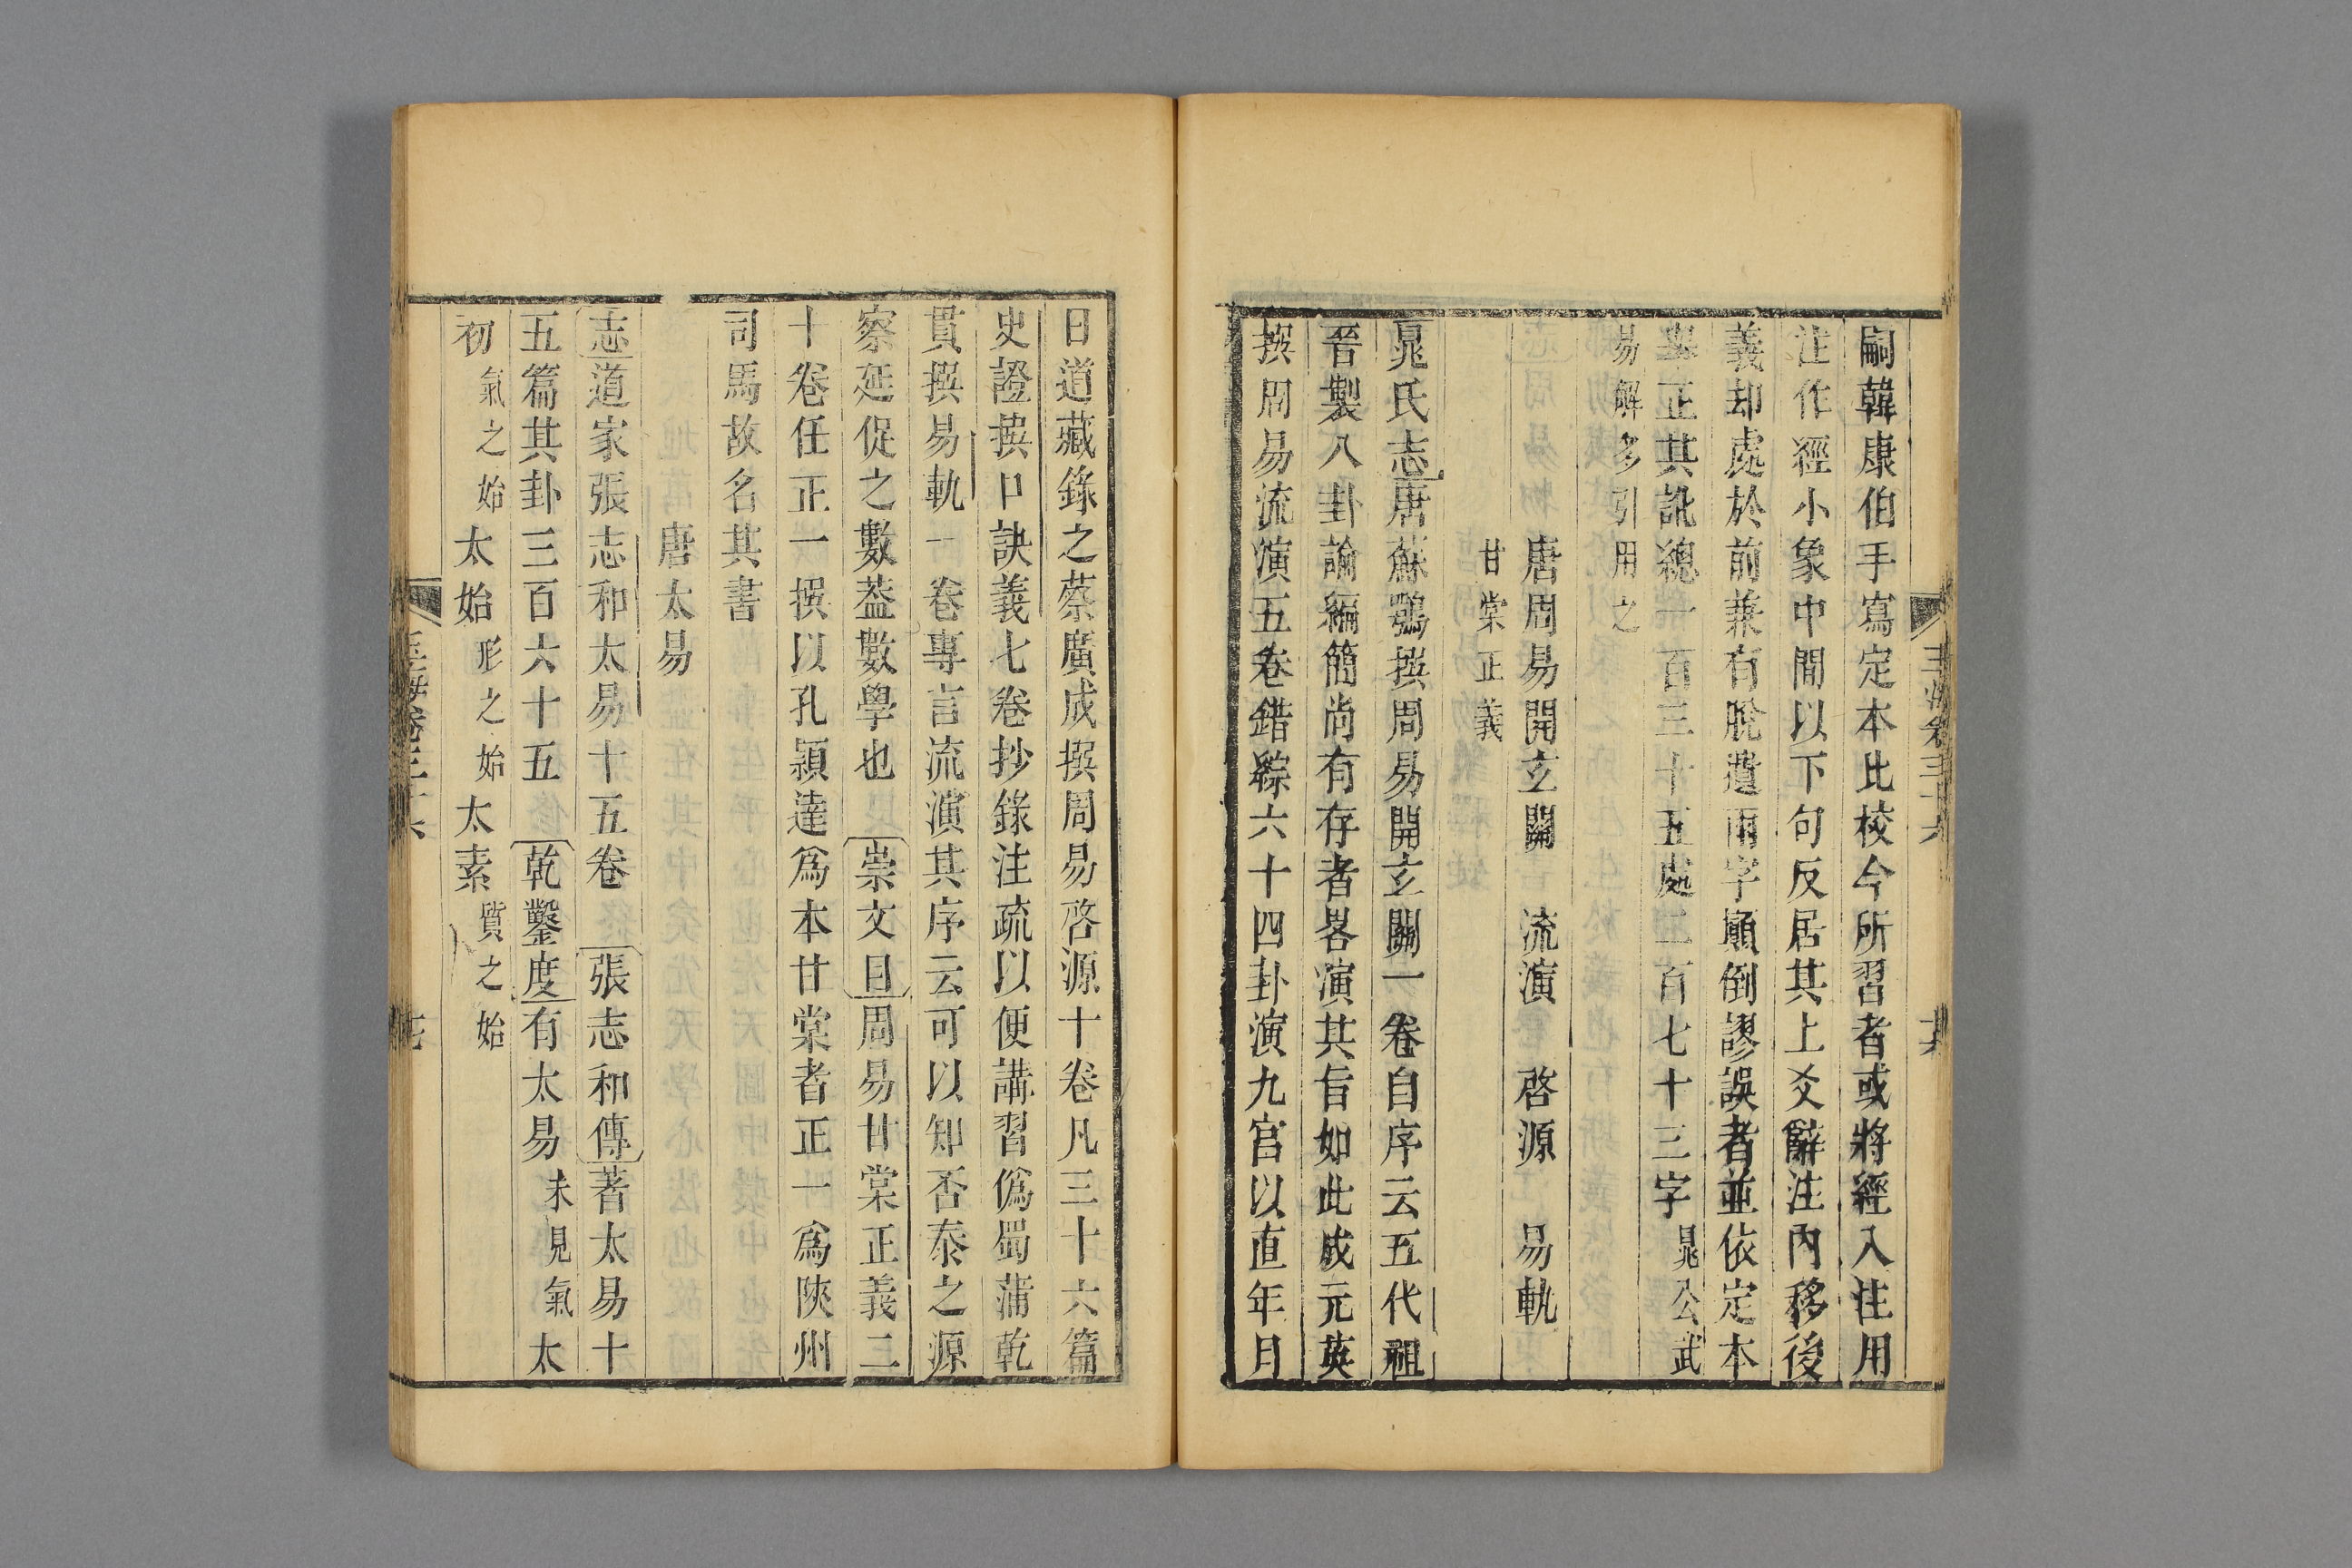 嗣韓康伯手寫定本比校今所習者或將經入注用
注作經小象中間以下句反居其上爻辭注內移後
義却處於前兼有脫遺兩字顚倒謬誤者並依定本
舉正其訛總一百三十五處二百七十三字晁公武
易解多引用之
唐周易開玄關 流演 啓源 易軌
甘棠正義
晁氏志唐蘇鶚撰周易開玄關一卷自序云五代祖
晉製八卦論編簡尚有存者畧演其旨如此成元英
撰周易流演五卷錯綜六十四卦演九宮以直年月
日道藏錄之蔡廣成撰周易啓源十卷凡三十六篇
史證撰口訣義七卷抄錄注疏以便講習僞蜀蒲乾
貫撰易軌一卷專言流演其序云可以知否泰之源
察延促之數葢數學也 崇文目周易甘棠正義二
十卷任正一撰以孔穎達爲本甘棠者正一爲陝州
司馬故名其書
唐太易
志道家張志和太易十五卷 張志和傳著太易十
五篇其卦三百六十五 乾鑿度有太易未見氣太
初氣之始太始形之始太素質之始